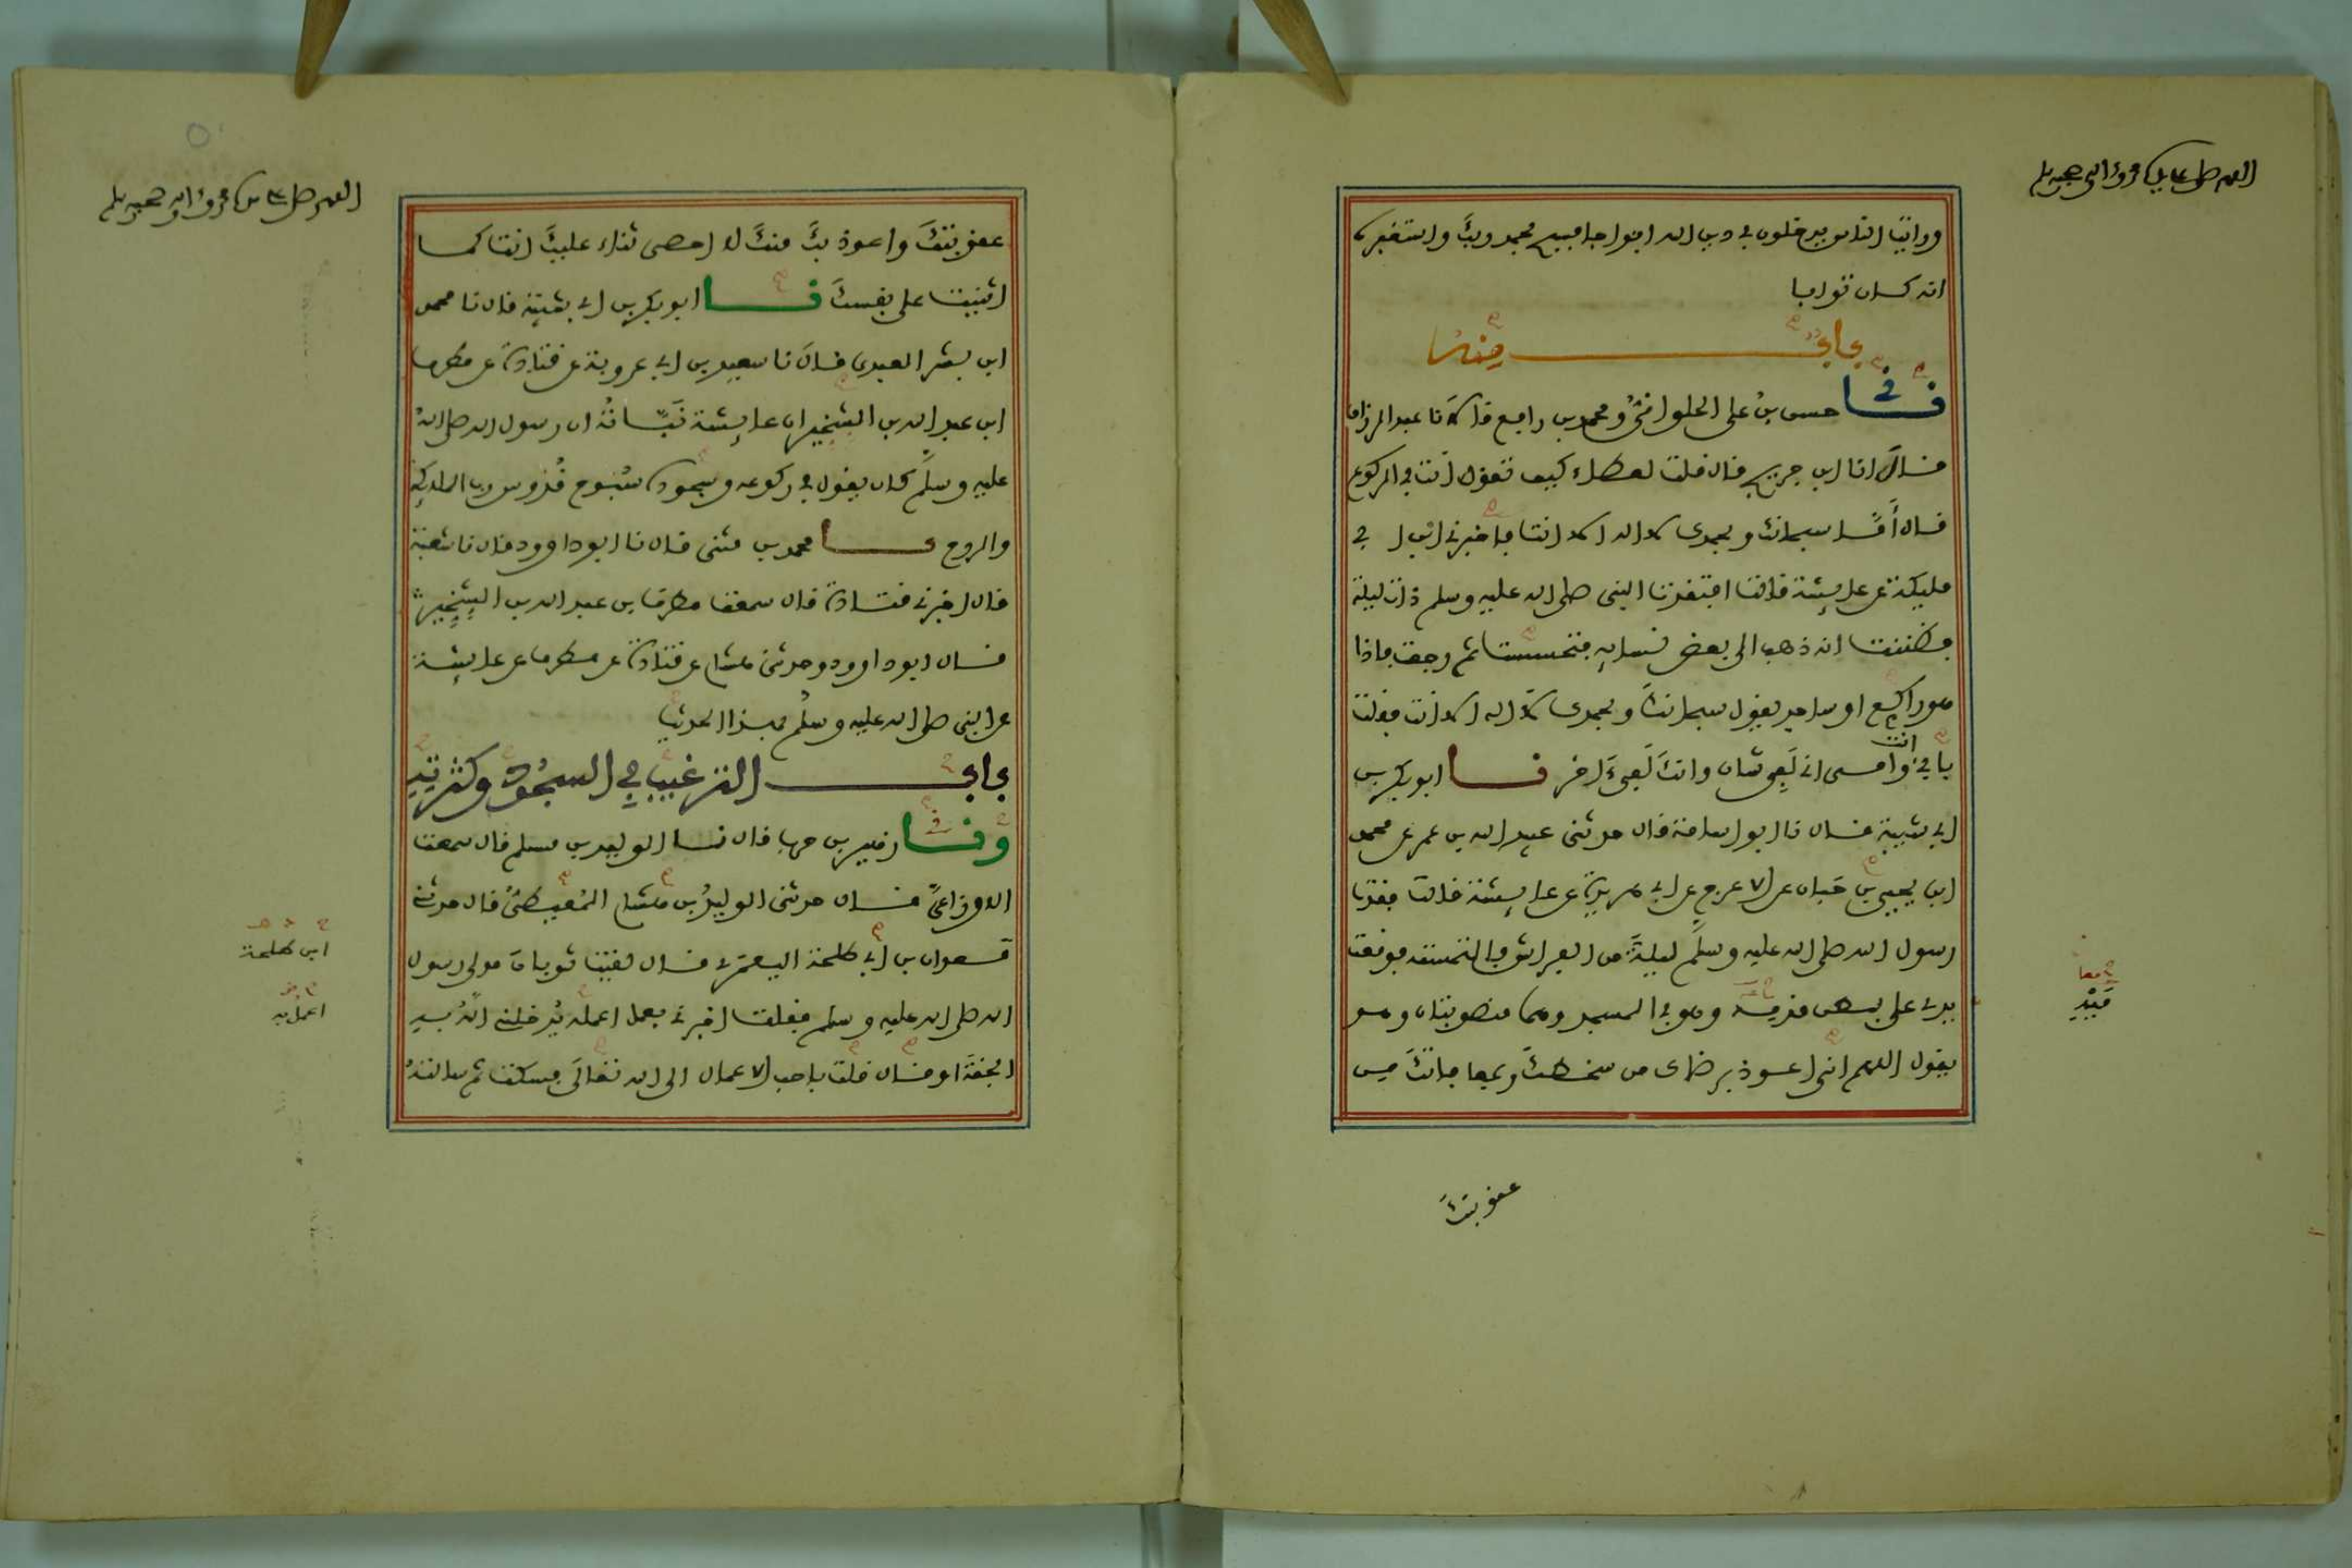 اللهم صل على سيدنا محمد وآله وصحبه وسلم
ورأيت الناس يدخلون في دين الله أفواجا فسبح بحمد ربك واستغفره
انه كان توابا
باب منه
نا حسن بن علي الحلواني ومحمد بن رافع قالا نا عبد الرزاق
قال انا ابن جريج قال قلت لعطاء كيف تقول أنت في الركوع
قال أما سبحانك وبحمدك لا اله الا انت فاخبرني ابن ابي
مليكة عن عايشة قالت افتقدت النبي صلى الله عليه وسلم ذات ليلة
فظننت انه ذهب الى بعض نسايه فتحسست ثم رجعت فاذا
هو راكع او ساجد يقول سبحانك وبحمدك لا اله الا انت فقلت
بأبي انت وأمي اني لفي شان وانك لفي آخر نا ابو بكر بن
ابي شيبة قال نا ابو اسامة قال حدثني عبيد الله بن عمر عن محمد
ابن يحيى بن حبان عن الاعرج عن ابي هريرة عن عايشة قالت فقدت
رسول الله صلى الله عليه وسلم ليلة من الفراش فالتمسته فوقعت
يدي على بطن قدميه وهو في المسجد وهما منصوبتان وهو
يقول اللهم اني اعوذ برضاك من سخطك وبمعافاتك من
معا
عقوبتك
اللهم صل على سيدنا محمد وآله وصحبه وسلم
عقوبتك واعوذ بك منك لا احصي ثناء عليك انت كما
اثنيت على نفسك نا ابو بكر بن ابي شيبة قال نا محمد
ابن بشر العبدي قال نا سعيد بن ابي عروبة عن قتادة عن مطرف
ابن عبد الله بن الشخير ان عايشة نبأته ان رسول الله صلى الله
عليه وسلم كان يقول في ركوعه وسجوده سبوح قدوس رب الملائكة
والروح نا محمد بن مثنى قال نا ابو داوود قال نا شعبة
قال اخبرني قتادة قال سمعت مطرف بن عبد الله بن الشخير
قال ابو داوود وحدثني هشام عن قتادة عن مطرف عن عايشة
عن النبي صلى الله عليه وسلم بهذا الحديث
باب الترغيب في السجود وكثرته
ونا زهير بن حرب قال نا الوليد بن مسلم قال سمعت
الاوزاعي قال حدثني الوليد بن هشام المعيطي قال حدثني
معدان بن ابي طلحة اليعمري قال لقيت ثوبان مولى رسول
الله صلى الله عليه وسلم فقلت اخبرني بعمل اعمله يدخلني الله به
الجنة او قال قلت باحب الاعمال الى الله تعالى فسكت ثم سالته
ابن طلحة
اعمل به